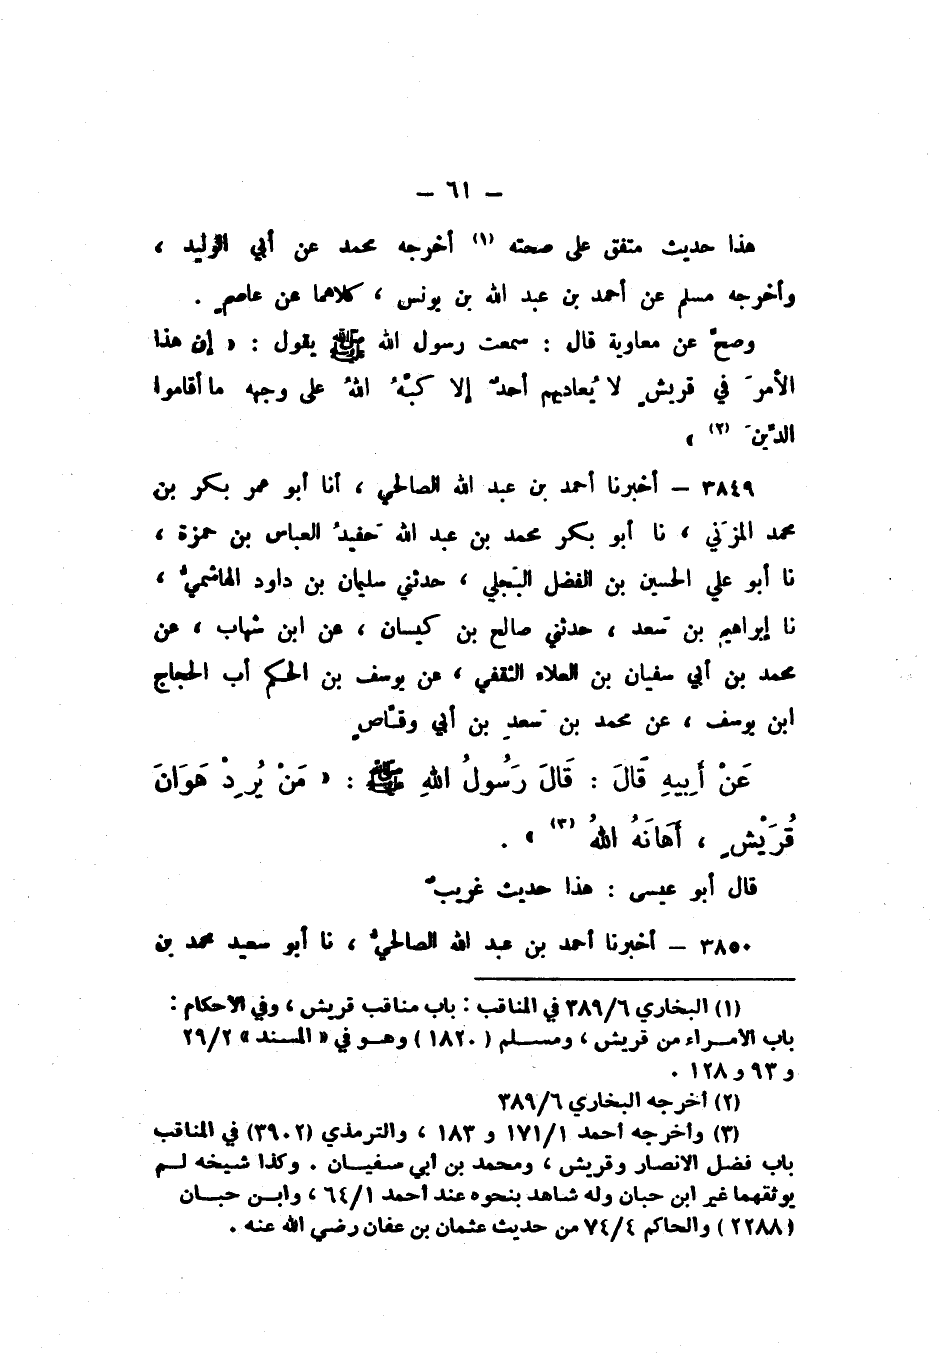 — ٦١ —
هذا حديث متفق على صحته (١) أخرجه محمد عن أبي الوليد ،
وأخرجه مسلم عن أحمد بن عبد الله بن يونس ، كلاهما عن عاصمٍ .
وصحَّ عن معاوية قال : سمعت رسول الله ﷺ يقول : « إن هذا
الأمرَ في قريشٍ لا يُعاديهم أحدٌ إلا كبَّهُ اللهُ على وجهه ما أقاموا
الدِّينَ (٢) »
٣٨٤٩ — أخبرنا أحمد بن عبد الله الصالحي ، أنا أبو عمر بكر بن
محمد المزَني ، نا أبو بكر محمد بن عبد الله حَفيدُ العباس بن حمزة ،
نا أبو علي الحسين بن الفضل البَجلي ، حدثني سليمان بن داود الهاشميُّ ،
نا إبراهيم بن سَعد ، حدثني صالح بن كيسان ، عن ابن شهاب ، عن
محمد بن أبي سفيان بن العلاء الثقفي ، عن يوسف بن الحكم أب الحجاج
ابن يوسف ، عن محمد بن سَعدِ بن أبي وقَّاصٍ
عَنْ أَبِيهِ قَالَ : قَالَ رَسُولُ اللهِ ﷺ : « مَنْ يُرِدْ هَوَانَ
قُرَيْشٍ ، أَهَانَهُ اللهُ (٣) » .
قال أبو عيسى : هذا حديث غريبٌ
٣٨٥٠ — أخبرنا أحمد بن عبد الله الصالحيُّ ، نا أبو سعيد محمد بن
(١) البخاري ٣٨٩/٦ في المناقب : باب مناقب قريش ، وفي الاحكام :
باب الامـراء من قريش ، ومسـلم (١٨٢٠) وهـو في « المسند » ٢٩/٢
و ٩٣ و ١٢٨ .
(٢) أخرجه البخاري ٣٨٩/٦
(٣) وأخرجه أحمد ١٧١/١ و ١٨٣ ، والترمذي (٣٩٠٢) في المناقب
باب فضل الانصار وقريش ، ومحمد بن أبي سفيـان . وكذا شيخه لـم
يوثقهما غير ابن حبان وله شاهد بنحوه عند أحمد ٦٤/١ ، وابـن حبـان
(٢٢٨٨) والحاكم ٧٤/٤ من حديث عثمان بن عفان رضي الله عنه .